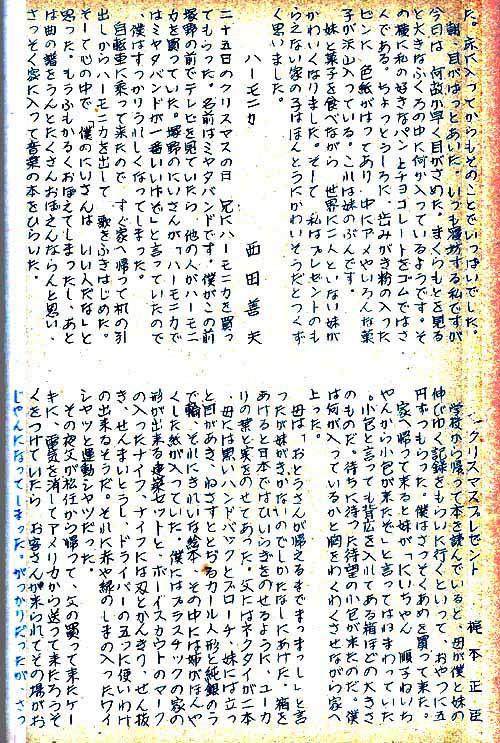 た。床に入ってからもそのことでいっぱいでした。
朝、目がぱっとあいた。いつも寝坊する私ですが
今日は、何故か早く目がさめた。まくらもとを見る
と大きなふくろの中に何か入っているようです。そ
の横に私の好きなパンとチョコレートをゴムではさ
んである。ちょっとうしろに、出みがき粉の入った
ビンに、色紙がはってあり、中にアメやいろんな菓
子が沢山入っている。これは妹のぶんです。
妹と菓子を食べながら、世界に二人といない妹が
かわいくなりました。そして、私はプレゼントのも
らえない家の子はほんとうにかわいそうだとつくず
く思いました。
ハーモニカ
西田善矢
二十五日のクリスマスの日、兄にハーモニカを買っ
てもらった。名前はミヤタバンドです。僕がこの前
塚野の前でテレビを見ていたら、他の人がハーモニ
カを買っていた。塚野のにいさんが、「ハーモニカで
はミヤタバンドが一番いいけぞ」と言っていたので
僕はすっかりうれしくなってしまった。
自転車に乗って来たので、すぐ家へ帰って机の引
出しから、ハーモニカを出して、歌をふきはじめた。
そして心の中で、「僕のにいさんは、いい人だな」と
思った。もうふもかるくおぼえてしまったし、あと
は曲の譜をうんとたくさんおぼえんならんと思い、
さっそく家に入って音楽の本をひらいた。
クリスマスプレゼント
梶本正臣
学校から帰って本を読んでいると、母が僕と妹の
伸びゆく記録をもらいに行くといって、おやつに五
円ずつもらった。僕はさっそくあめを買って来た。
家へ帰って来ると妹が「にいちゃん、順子ねいち
やんから小包が来たぞ」と言ってはねまわっていた
。小包と言っても背広を入れてある箱ほどの大きさ
のものだ。待ちに待った待望の小包が来たのだ。僕
は何が入っているかと胸をわくわくさせながら家へ
上った。
母は「おとうさんが帰えるまでまってまっし」と言
ったが妹がきかないのでしかたなしにあけた。箱を
あけると日本ではひいらぎをのせるように、ユーカ
リの葉と実をのせてあった。父にはネクタイが二本
母には黒いハンドバックとブローチ、妹には立つ
と目があき、ねさすととじるカール人形と純銀のう
で輪、それにきれいな絵本、その中には姉がほんや
くした紙が入っていた。僕にはプラスチックの家の
形が出来る建築セットと、ボーイスカウトのマーク
の入ったナイフ、ナイフには双とかんきり、せん抜
き、せんまいとうし、ドライバーの五つに使いわけ
の出来るそうだ。それに赤や緑のしまの入ったワイ
シャツと運動シャツだった。
その夜父が松任から帰って、父の買って来たケー
キに、電気を消してアメリカから送って来たろうそ
くをつけていたら、お客さんが来られてその場がお
じゃんになってしまった。がっかりだったが、さっ